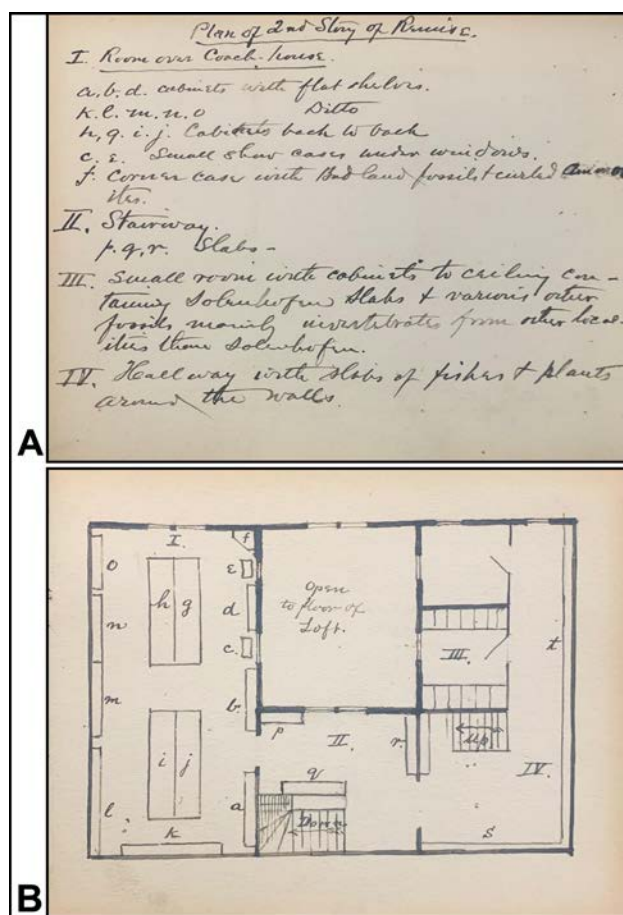 Plan of 2nd Story of Remise.
I. Room over Coach-house.
a. b. d. cabinets with flat shelves.
k. l. m. n. o Ditto
h, g. i. j. Cabinets back to back
c. e. Small show cases under windows.
f. Corner case with Bad land fossils & curled Ammon
ites.
II. Stairway.
p. q. r. Slabs -
III. Small room with cabinets to ceiling con-
taining Solenhofen Slabs & various other
fossils mainly invertebrates from other local
ities than Solenhofen.
IV. Hallway with slabs of fishes & plants
around the walls.
A
I.
f
o
e
h g
d
Open
to floor of
Loft.
n
c.
III.
t
m
b.
p
II.
r.
Up
i j
q
IV.
l
a
Down
k
s
B